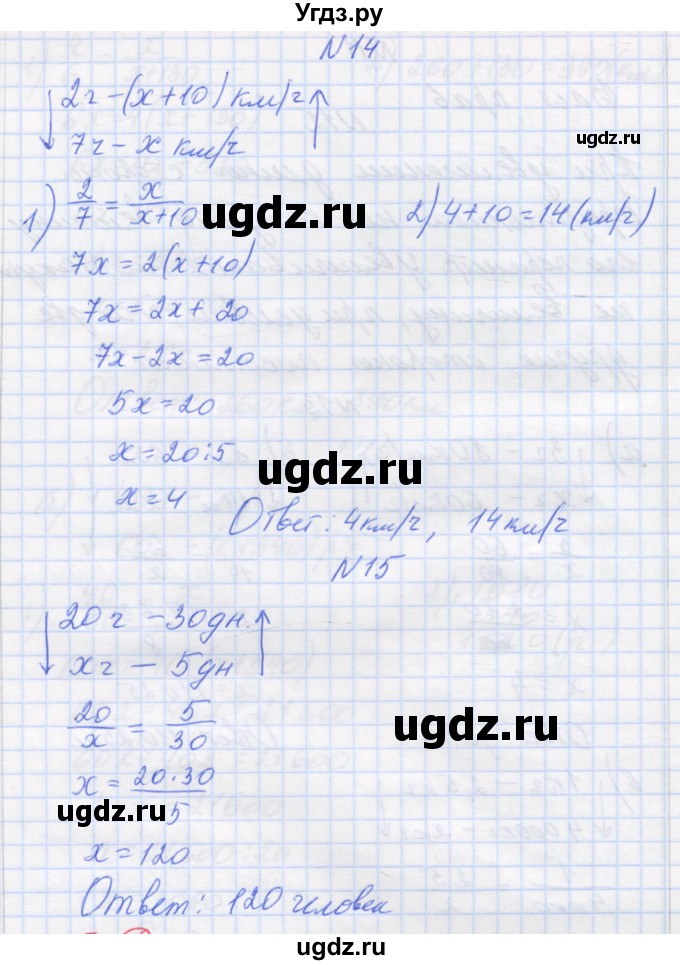 Угдз.ру
N14
2ч – (x+10) км/ч
7ч – x км/ч
ugdz.ru
1) 2/7 = x/(x+10)
2) 4+10=14(км/ч)
ugdz.ru
7x=2(x+10)
7x=2x+20
7x-2x=20
5x=20
x=20:5
ugdz.ru
x=4
Ответ: 4км/ч, 14км/ч
N15
20ч – 30дн.
xч – 5дн
ugdz.ru
20/x = 5/30
ugdz.ru
x= 20·30/5
ugdz.ru
x=120
Ответ: 120 человек
ugdz.ru